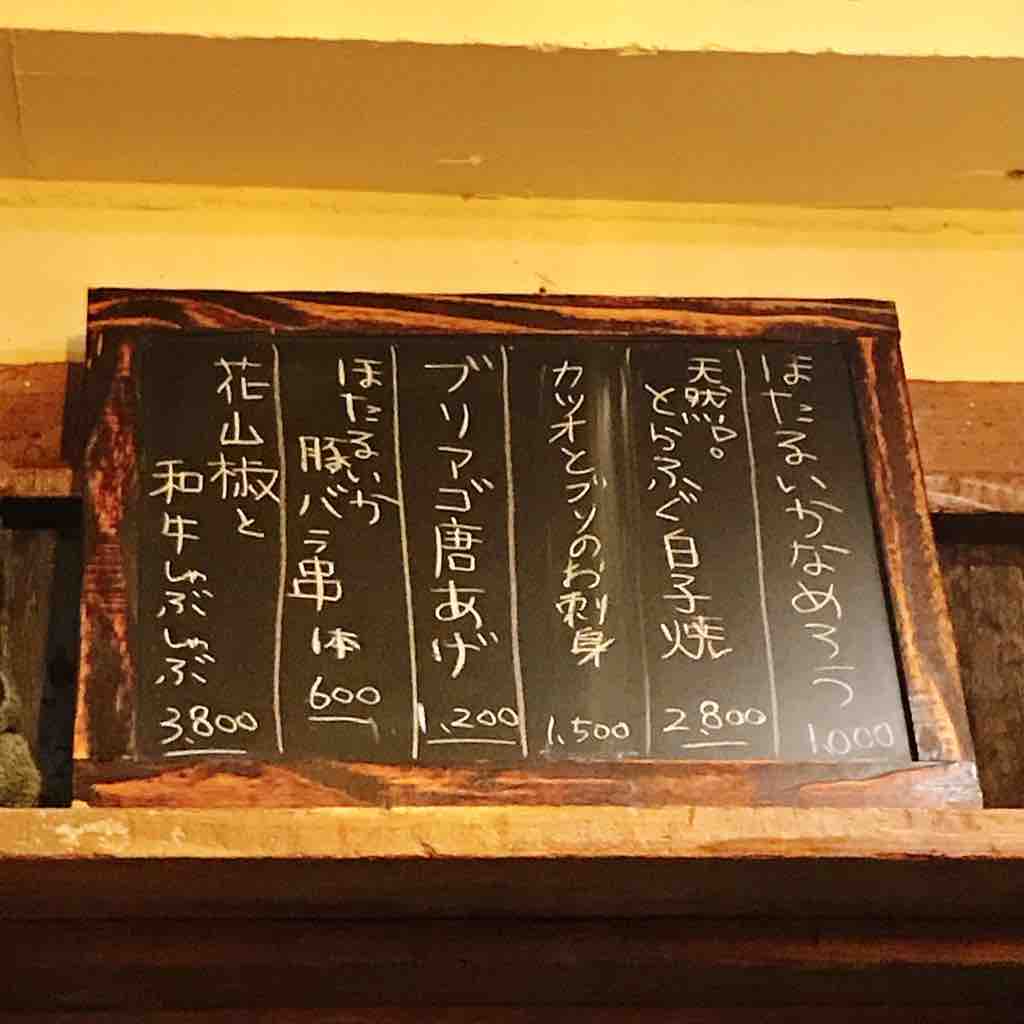 ほたるいかなめろう
1,000
天然。
とらふぐ白子焼
2,800
カツオとブリのお刺身
1,500
ブリアゴ唐あげ
1,200
ほたるいか
豚バラ串 1本
600
花山椒と
和牛しゃぶしゃぶ
3,800